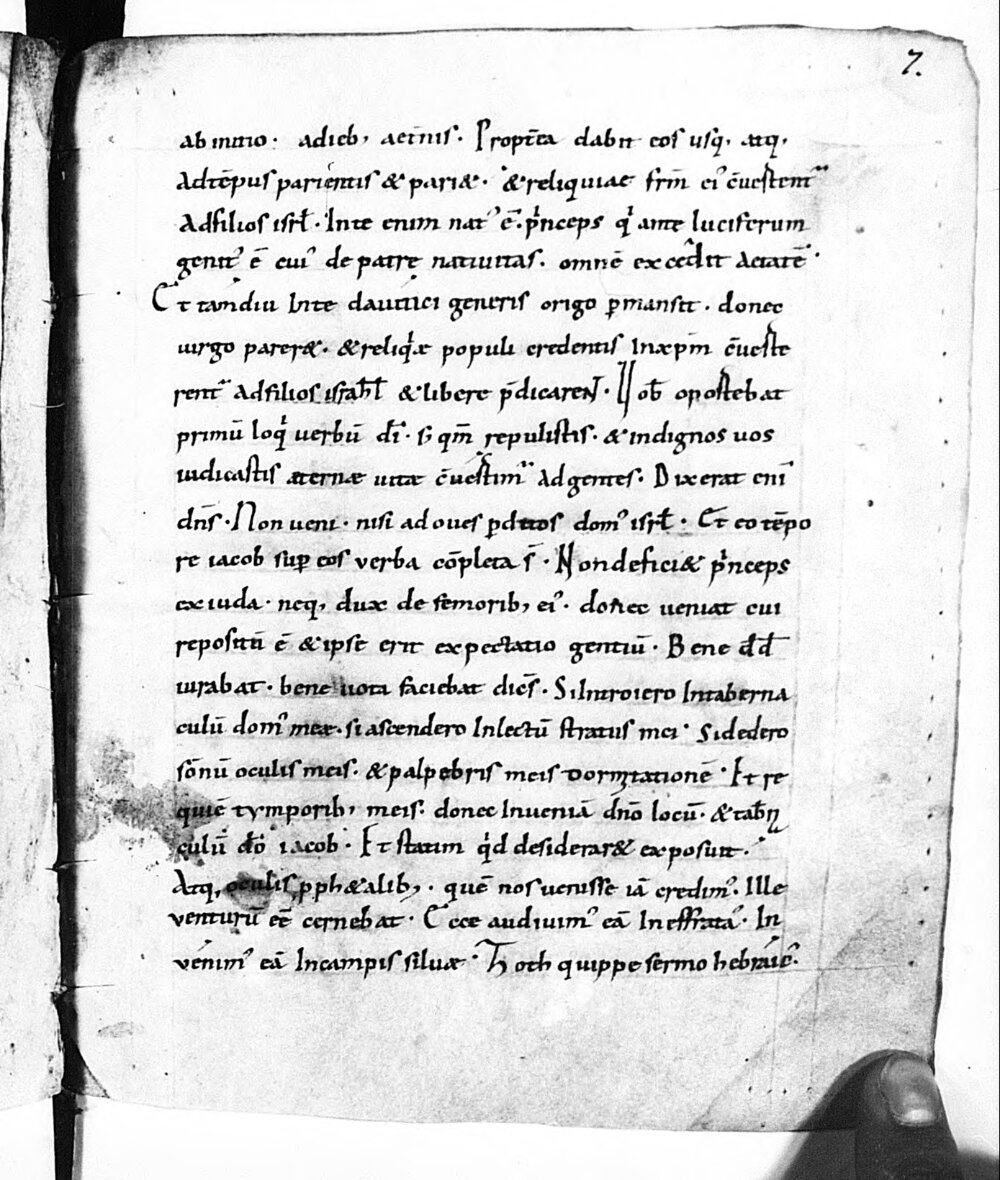 7.
ab initio · adieb, aet̄nis · Propt̄ea dabit eos usq, atq,
Adtēpus parientis & pariæ · & reliquiae frm̄ ei᾽ c̄uertent᾽
Adfilios isrł · Inte enim nat᾽ ē · p̍nceps q̍ ante luciferum
genit᾽ ē cui᾽ de patrę nativitas · omnē excedit aetatē ·
Et tamdiu Inte dauitici generis origo p̱mansit · donec
uirgo parer& · & reliq̍æ populi credentis Inxp̄m c̄uerte
rent᾽ Adfilios israhł & libere p̄dicarent · Uob̄ oportebat
primū loq̍ uerbū dī · s; qm̄ repulistis · & indignos uos
iudicastis æternæ uitæ c̄uertim᾽ Ad gentes · Dixerat eni
dn̄s · Non ueni · nisi ad oues p̱ditos dom᾽ isrł · Et eo tēpo
re iacob sup̱ eos verba cōpleta s̄ · Non defici& p̍nceps
exiuda · neq, dux de femorib, ei᾽ · donec ueniat cui
repositū ē & ipse erit expectatio gentiū · Bene dd̄
iurabat · bene uota faciebat dic̄s · SiIntroiero Intaberna
culū dom᾽ meæ · si ascendero Inlectū stratus mei · Si dedero
sōnū oculis meis · & palpebris meis dormitationē · Et re
quiē tymporib, meis · donec Inueniā dn̄o locū · & tab̄n
culū d̄o iacob · Et statim q̍d desiderar& exposuit ·
Atq, oculis p̱ph&alib, · quē nos uenisse iā credim᾽ · Ille
venturū eē cernebat · Ecce audivim᾽ eā Ineffrata᾽ · In
venim᾽ eā Incampis siluæ · Hoch quippe sermo hebraic᾽ ·